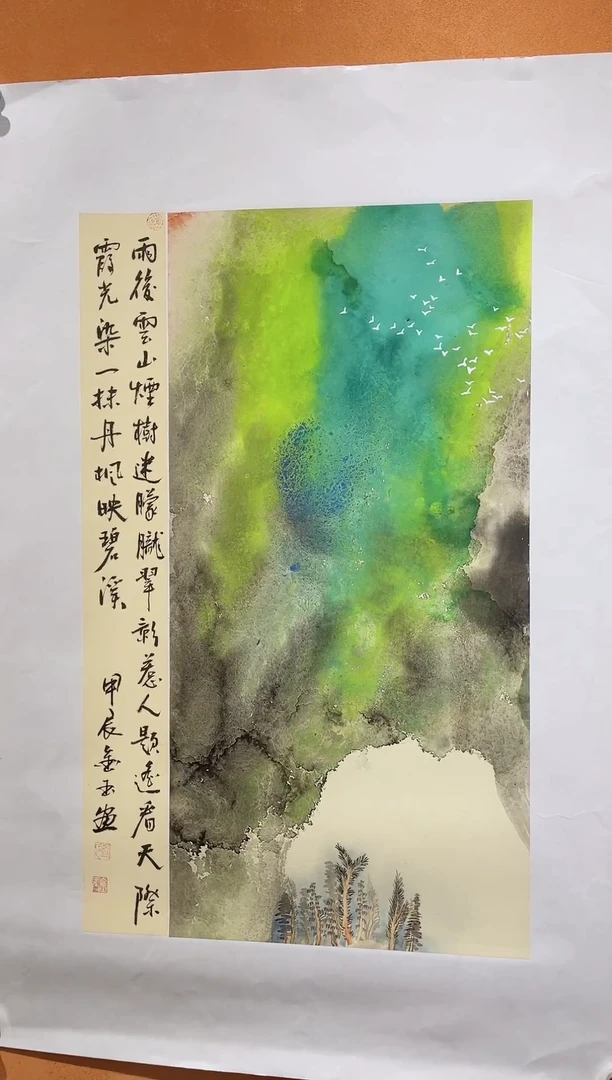 雨後雲山煙樹迷朦朧翠影惹人題遙看天際
霞光染一抹丹楓映碧溪
甲辰金玉畫